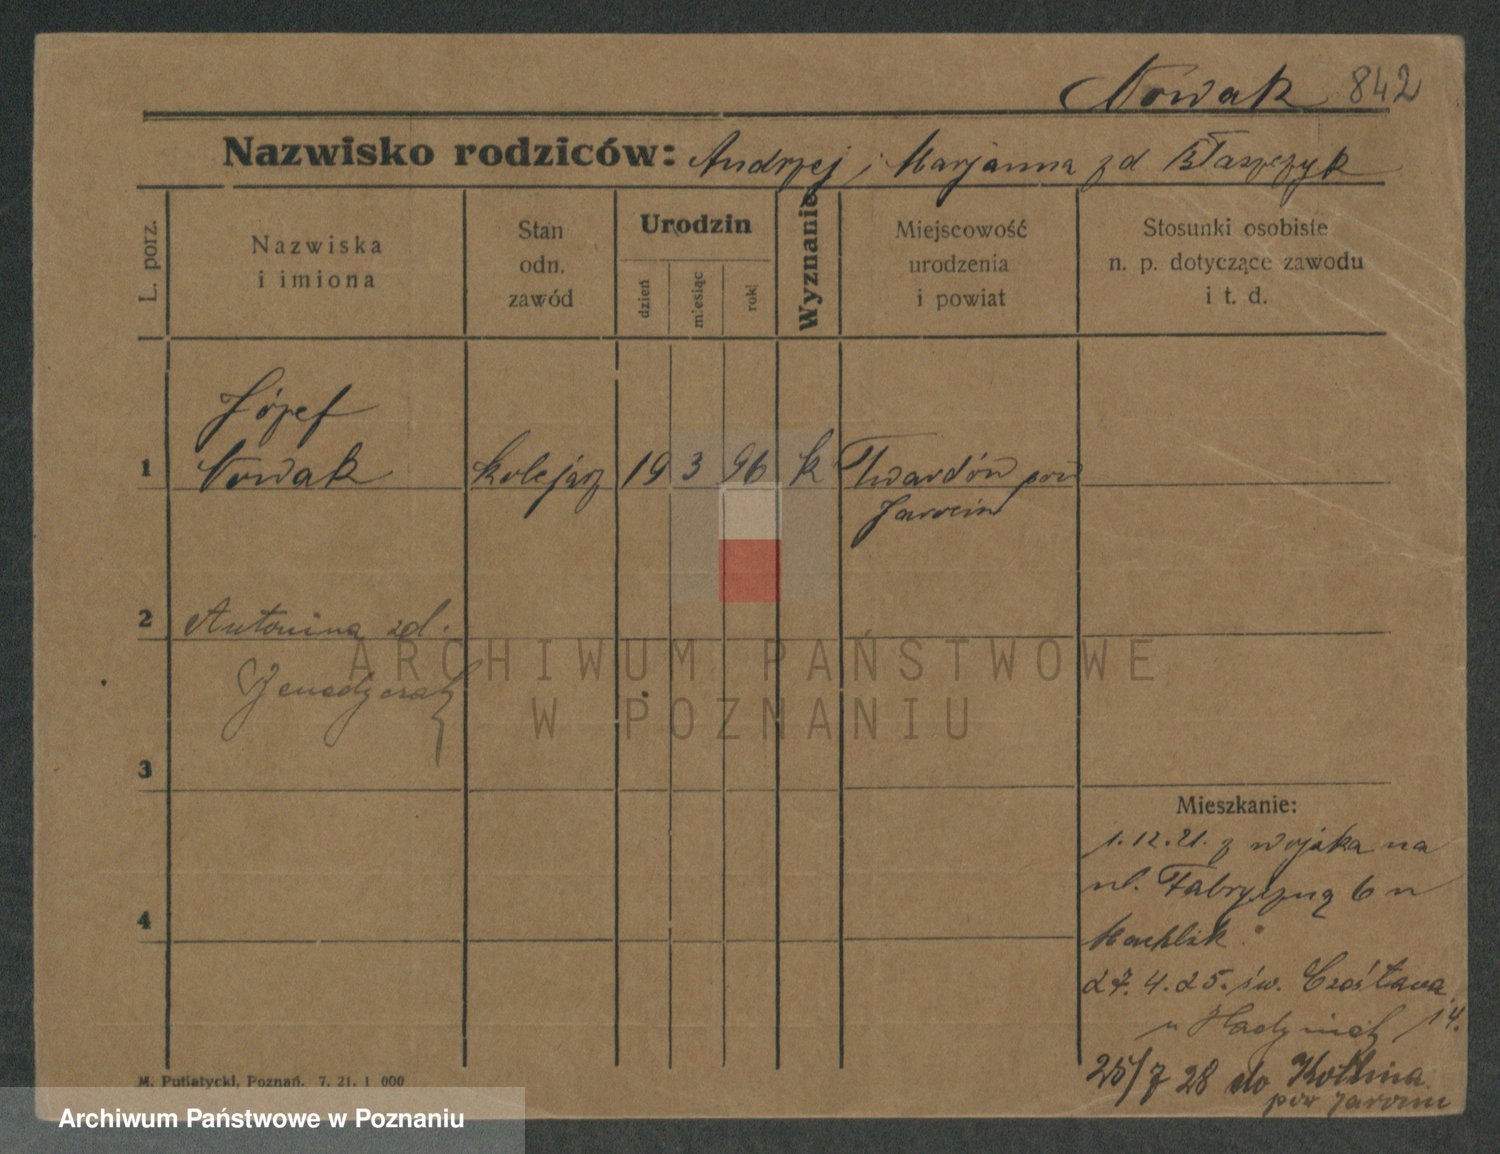 Nowak 842
Nazwisko rodziców: Andrzej i Marjanna zd Błaszczyk
L. porz.
Nazwiska
i imiona
Stan
odn.
zawód
Urodzin
dzień
miesiąc
rok
Wyznanie
Miejscowość
urodzenia
i powiat
Stosunki osobiste
n. p. dotyczące zawodu
i t. d.
Józef
1 Nowak kolejarz 19 3 96 k Twardów pow
Jarocin
2 Antonina zd.
3
4
Mieszkanie:
1.12.21. z wojska na
ul. Fabryczną 6 u
27.4.25. św. Czesława
14.
25/7 28 do Kotlina
pow Jarocin
M. Putiatycki, Poznań. 7. 21. 1 000
ARCHIWUM PAŃSTWOWE
W POZNANIU
Archiwum Państwowe w Poznaniu